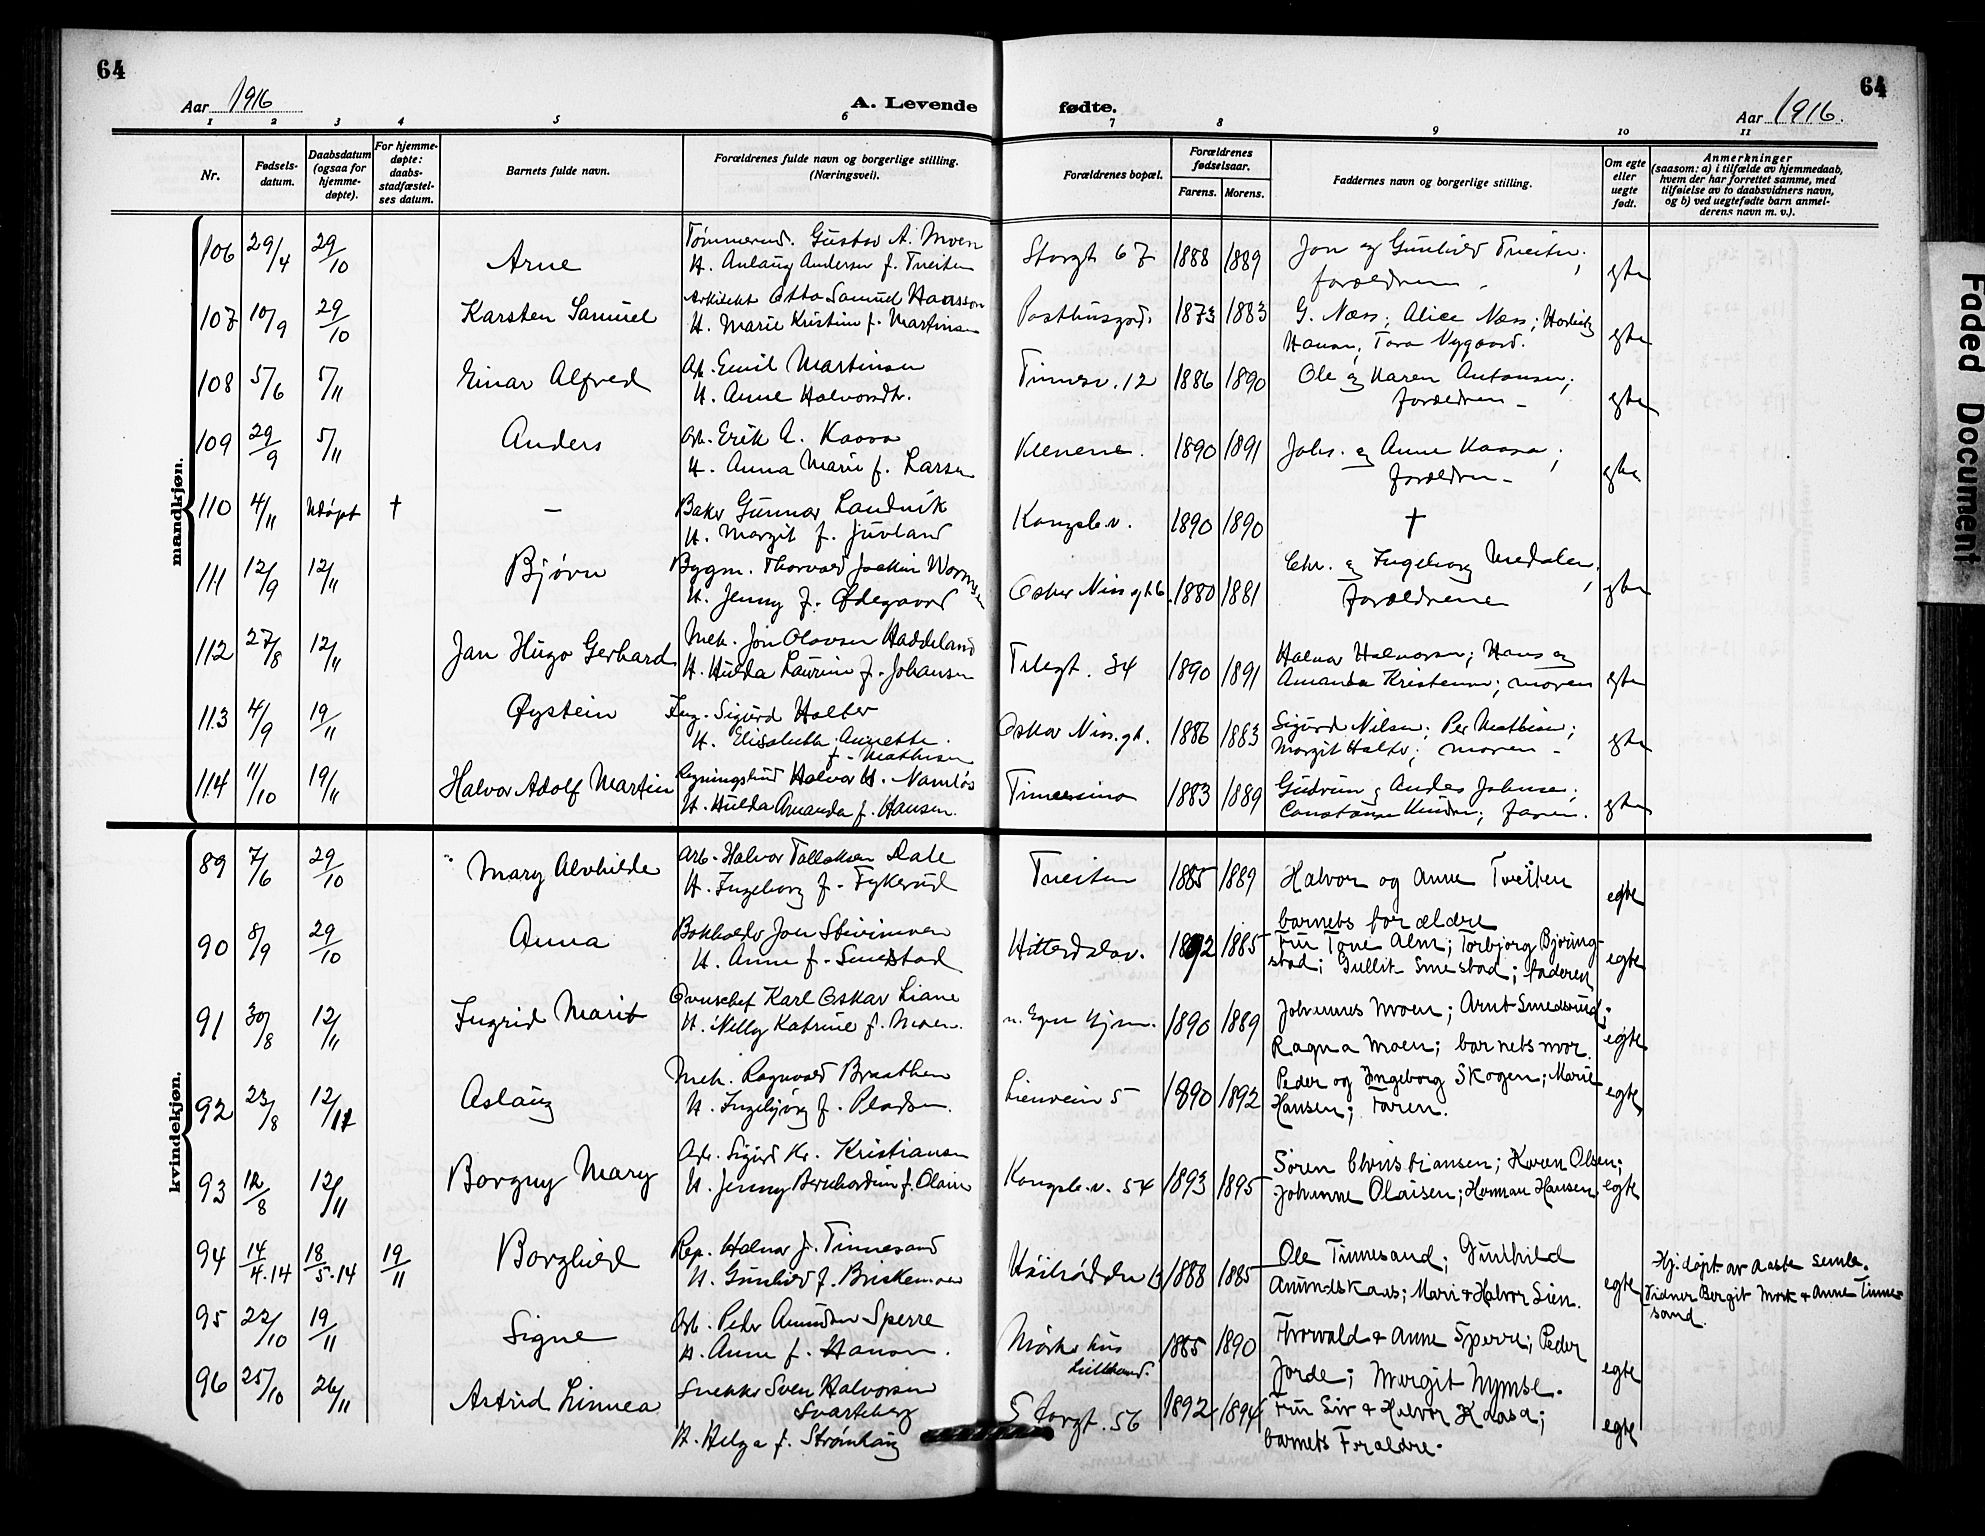 64
64
Aar 1916
A. Levende
fødte.
Aar 1916.
1 2 3 4 5 6 7 8 9 10 11
Nr.
Fødsels-
datum.
Daabsdatum
(ogsaa for
hjemme-
døpte).
For hjemme-
døpte:
daabs-
stadfæstel-
ses datum.
Barnets fulde navn.
Forældrenes fulde navn og borgerlige stilling.
(Næringsvei).
Forældrenes bopæl.
Forældrenes
fødselsaar.
Farens. Morens.
Faddernes navn og borgerlige stilling.
Om egte
eller
uegte
født.
Anmerkninger
(saasom: a) i tilfælde av hjemmedaab,
hvem der har forrettet samme, med
tilføielse av to daabsvidners navn,
og b) ved uegtefødte barn anmel-
derens navn m. v.).
mandkjøn.
106 29/4 29/10 Arne
Tømmermd. Gustav A. Moen
H. Aslaug Andersen f. Tveiten
Storgt 67 1888 1889
Jon og Gunhild Tveiten;
forældrene -
egte
107 10/9 29/10 Karsten Samuel
Arkitekt Otto Samuel Hansson
H. Marie Kristine f. Martinsen
Posthusgrd. 1873 1883
G. Næss; Alice Næss;
Hansen; Tora Nygaard.
egte
108 5/6 5/11 Einar Alfred
Arb. Emil Martinsen
H. Anne Halvorsdtr.
Tinnesv. 12 1886 1890
Ole og Karen Antonsen;
forældrene -
egte
109 29/9 5/11 Anders
Arb. Erik A. Kaasa
H. Anna Marie f. Larsen
Klenene. 1890 1891
Johs. og Anne Kaasa;
forældrene -
egte
110 4/11 Udøpt † -
Baker Gunnar Landsvik
H. Margit f. Juvland
Kongsb.v. 1890 1890
†
111 12/9 12/11 Bjørn
Bygm. Thorvald Joakim Wormsen
H. Jenny f. Ødegaard
Oskar Niss.gt 6. 1880 1881
Chr. og Ingeborg Medalen;
forældrene
egte
112 27/8 12/11 Jan Hugo Gerhard
Mek. Jon Olavsen Haddeland
H. Hulda Laurine f. Johansen
Telegt. 34 1890 1891
Halvor Halvorsen; Hans og
Amanda Kristensen; moren
egte
113 4/9 19/11 Øystein
Ing. Sigurd Holter
H. Elisabeth Annette
f. Mathisen
Oskar Niss.gt. 1886 1883
Sigurd Nilsen; Per Mathisen;
Margit Holter; moren -
egte
114 11/10 19/11 Halvor Adolf Martin
Bygningssnd Halvor H. Namløs
H. Hulda Amanda f. Hansen.
Tinnesmo 1883 1889
Gudrun og Anders Johnsen;
Constanse Knudsen; faren.
egte
kvindekjøn.
89 7/6 29/10 Mary Alvhilde
Arb. Halvor Tollaksen Dale
H. Ingeborg f. Fykerud
Tveiten 1885 1889
Halvor og Anne Tveiten
barnets forældre
egte
90 8/9 29/10 Anna
Bokholder Jon Stivimoen
H. Anne f. Smedstad
Hitterdalsv. 1892 1885
Fru Tone Alm; Torbjørg Bjøring-
stad; Gullik Smestad; faderen
egte
91 30/8 12/11 Ingrid Marit
Ovnschef Karl Oskar Liane
H. Nelly Katrine f. Moen.
n. Egen Hjem. 1890 1889
Johannes Moen; Arnt Smedsrud;
Ragna Moen; barnets mor.
egte.
92 23/8 12/11 Aslaug
Mek. Ragnvald Braathen
H. Ingebjørg f. Pladsen.
Lienvein 5 1890 1892
Peder og Ingeborg Skogen; Marie
Hansen; Faren.
egte
93 12/8 12/11 Borgny Mary
Arb. Sigurd Kr. Kristiansen
H. Jenny Bernhardine f. Olaisen
Kongsb.v. 54 1893 1895
Søren Christiansen; Karen Olsen;
Johanne Olaisen; Herman Hansen.
egte
94 14/4.14 18/5.14 19/11 Borghild
Rep. Halvor J. Tinnesand
H. Gunhild f. Briskemoen
1888 1885
Ole Tinnesand; Gunhild
Amundskaas; Mari & Halvor Lien.
egte
Hj. døpt av Aaste Semle.
Vidner Bergit Mork & Anne Tinne-
sand.
95 22/10 19/11 Signe
Arb. Peter Amundsen Sperre
H. Anne f. Hansen.
Mørks hus
Lillesand. 1885 1890
Thorvald & Anne Sperre; Peder
Jorde; Margit Nymbe.
egte
96 25/10 26/11 Astrid Linnea
Snekker Sven Halvorsen
Svarteberg
H. Helga f. Strømhaug
Storgt. 56 1892 1894
Fru Siv & Halvor Kaasa;
barnets Forældre.
egte
Faded Document